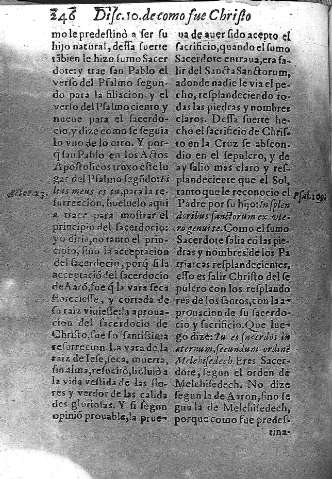 248 Disc. 10. de como fue Christo
mo le predestinò a ser su
hijo natural, dessa suerte
tãbien le hizo sumo Sacer
dote: y trae san Pablo el
verso del Psalmo segundo
para la filiacion, y el
verso del Psalmo ciento, y
nueue para el sacerdo-
cio, y dize como se seguia
lo vno de lo otro. Y por-
q̃ san Pablo en los Actos
Apostolicos truxo este lu
gar del Psalmo segũdo:
Actor. 13.
lius meus es tu, para la re-
surreccion, bueluelo aqui
a traer para mostrar el
principio del sacerdocio:
yo diria, no tanto el prin-
cipio, sino la acceptacion
del sacerdocio, porq̃ si la
acceptaciõ del sacerdocio
de Aarõ, fue q̃ la vara seca
floreciesse, y cortada de
su raiz viuiesse: la aproua-
cion del sacerdocio de
Christo, fue su santissima
resurreciõ. La vara de la
raiz de Iese, seca, muerta,
sin alma, resucitò, boluiò a
la vida vestida de las flo-
res y verdor de las calida
des gloriosas. Y si segun
opiniõ prouable, la prue-
ua de auer sido acepto el
sacrificio, quando el sumo
Sacerdote entraua, era sa-
lir del Sancta Sanctorum,
adonde nadie le via el pe-
cho, resplandeciendo to-
das las piedras y nombres
claros. Dessa suerte he-
cho el sacrificio de Chris-
to en la Cruz se abscon-
dio en el sepulcro, y de
ay saliò mas claro y res-
plandeciente que el Sol,
tanto que le reconociò el
Psal. 109.
Padre por su hijo: In splen
doribus sanctorum ex vte-
ro genui te. Como el sumo
Sacerdote salia cõ las pie-
dras y nombres de los Pa
triarcas resplandecientes,
esso es salir Christo del se
pulcro con los resplando
res de los santos, con la a-
prouacion de su sacerdo-
cio y sacrificio. Que lue-
go dize: Tu es sacerdos in
æternum, secundum ordinẽ
Melchisedech, eres Sacer-
dote, segun el orden de
Melchisedech. No dize
segun la de Aaron, sino se
gun la de Melchisedech,
porque como fue predes-
tina-